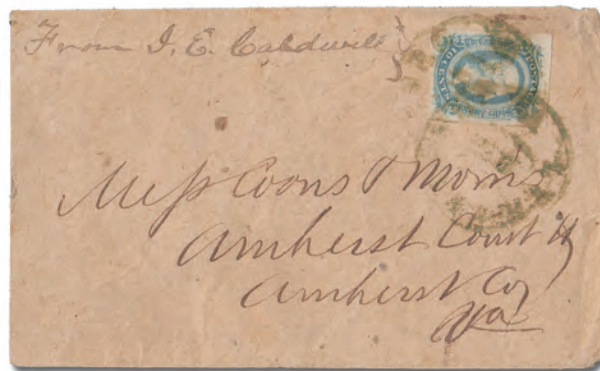 From J. E. Caldwell
Mess Coons & Morris
Amherst Court H
Amherst Co
Va